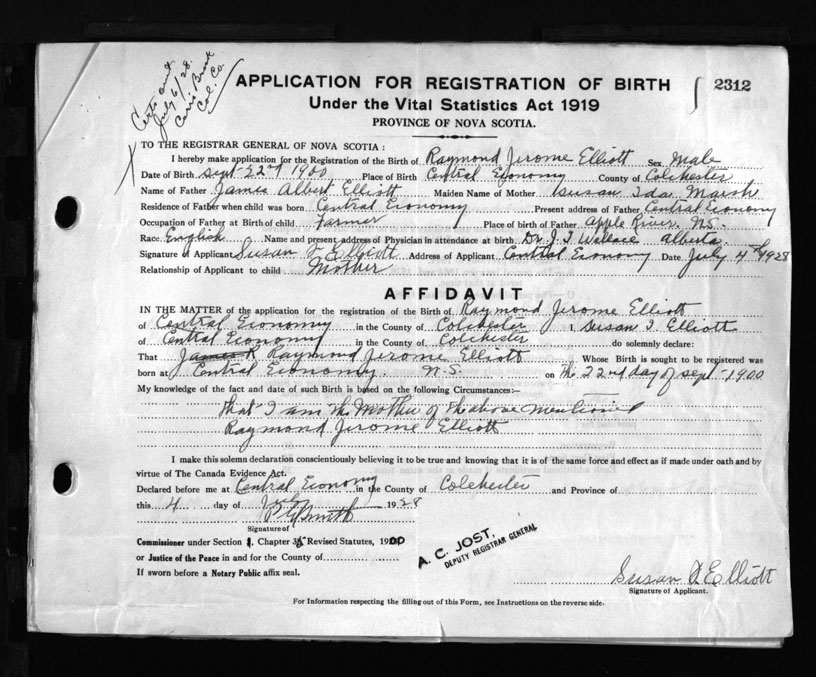 Certs sent
July 6/28.
Brook
Col. Co.
APPLICATION FOR REGISTRATION OF BIRTH
2312
Under the Vital Statistics Act 1919
PROVINCE OF NOVA SCOTIA.
TO THE REGISTRAR GENERAL OF NOVA SCOTIA:
I hereby make application for the Registration of the Birth of Raymond Jerome Elliott Sex Male
Date of Birth Sept. 22nd 1900 Place of Birth Central Economy County of Colchester
Name of Father James Albert Elliott Maiden Name of Mother Susan Ida Marsh
Residence of Father when child was born Central Economy Present address of Father Central Economy
Occupation of Father at Birth of child Farmer Place of birth of Father Apple River, N.S.
Race English Name and present address of Physician in attendance at birth Dr. J. T Wallace Alberta.
Signature of Applicant Susan I. Elliott Address of Applicant Central Economy Date July 4th 1928
Relationship of Applicant to child Mother
AFFIDAVIT
IN THE MATTER of the application for the registration of the Birth of Raymond Jerome Elliott
of Central Economy in the County of Colchester I Susan I. Elliott
of Central Economy in the County of Colchester do solemnly declare:
That Raymond Jerome Elliott Whose Birth is sought to be registered was
born at Central Economy. N.S. on the 22nd day of Sept 1900
My knowledge of the fact and date of such Birth is based on the following Circumstances:—
that I am the Mother of the above mentioned
Raymond Jerome Elliott
I make this solemn declaration conscientiously believing it to be true and knowing that it is of the same force and effect as if made under oath and by
virtue of The Canada Evidence Act.
Declared before me at Central Economy in the County of Colchester and Province of
this 4 day of July 1928
Smith
Signature of
Commissioner under Section 1, Chapter 35 Revised Statutes, 1900
or Justice of the Peace in and for the County of
If sworn before a Notary Public affix seal.
A. C. JOST.
DEPUTY REGISTRAR GENERAL
Susan I Elliott
Signature of Applicant.
For Information respecting the filling out of this Form, see Instructions on the reverse side.